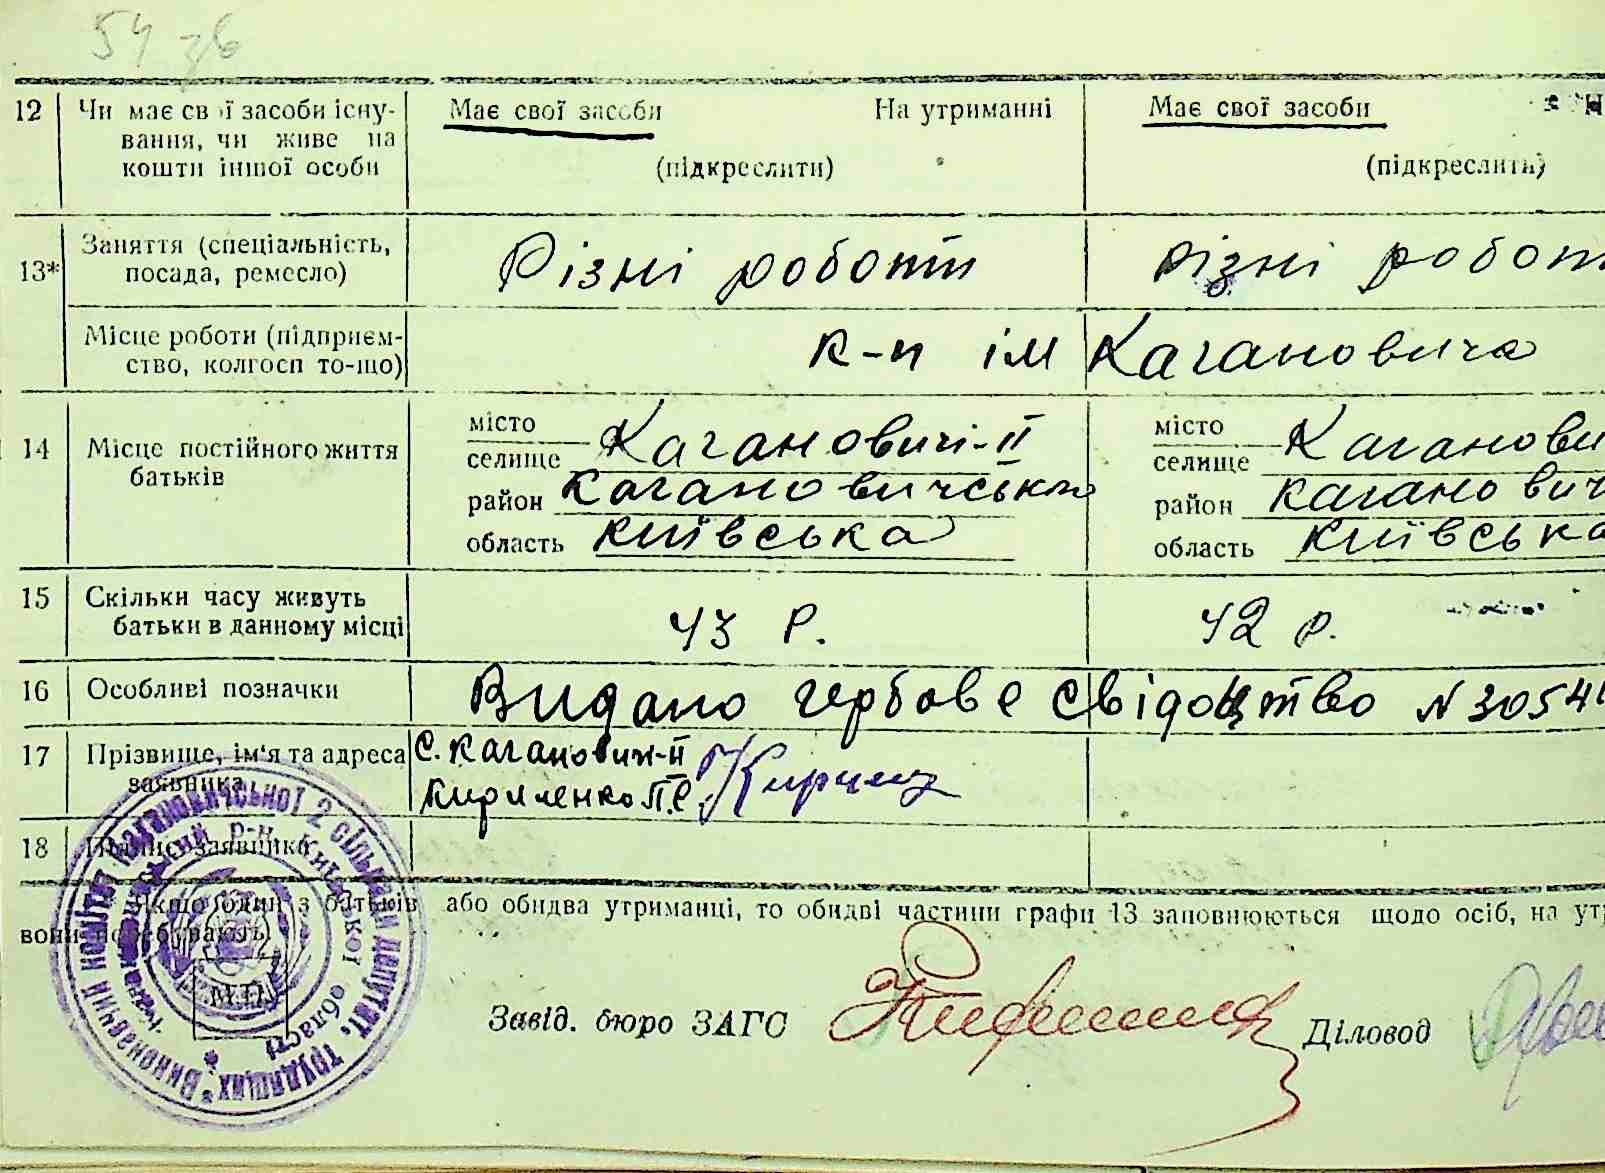 54 зв
12 Чи має свої засоби існу- Має свої засоби На утриманні Має свої засоби Н
вання, чи живе на
кошти іншої особи (підкреслити) (підкреслити)
13* Заняття (спеціальність, Різні роботи різні робот
посада, ремесло)
Місце роботи (підприєм- к-п ім Кагановича
ство, колгосп то-що)
14 Місце постійного життя місто місто
батьків селище Кагановичі-II селище Каганови
район Кагановичський район Каганович
область Київська область Київська
15 Скільки часу живуть 43 р. 42 р.
батьки в данному місці
16 Особливі позначки Видано гербове свідоцтво N 3054
17 Прізвище, ім'я та адреса С. Каганович-II
заявника Кириленко П.С.
18 Підпис заявника
* Якщо один з батьків або обидва утриманці, то обидві частини графи 13 заповнюються щодо осіб, на ут
вони перебувають
М.П.
Завід. бюро ЗАГС Діловод
Виконавчий комітет Кагановичської 2 сільради депутат. трудящих
Кагановичський р-н. Київської області